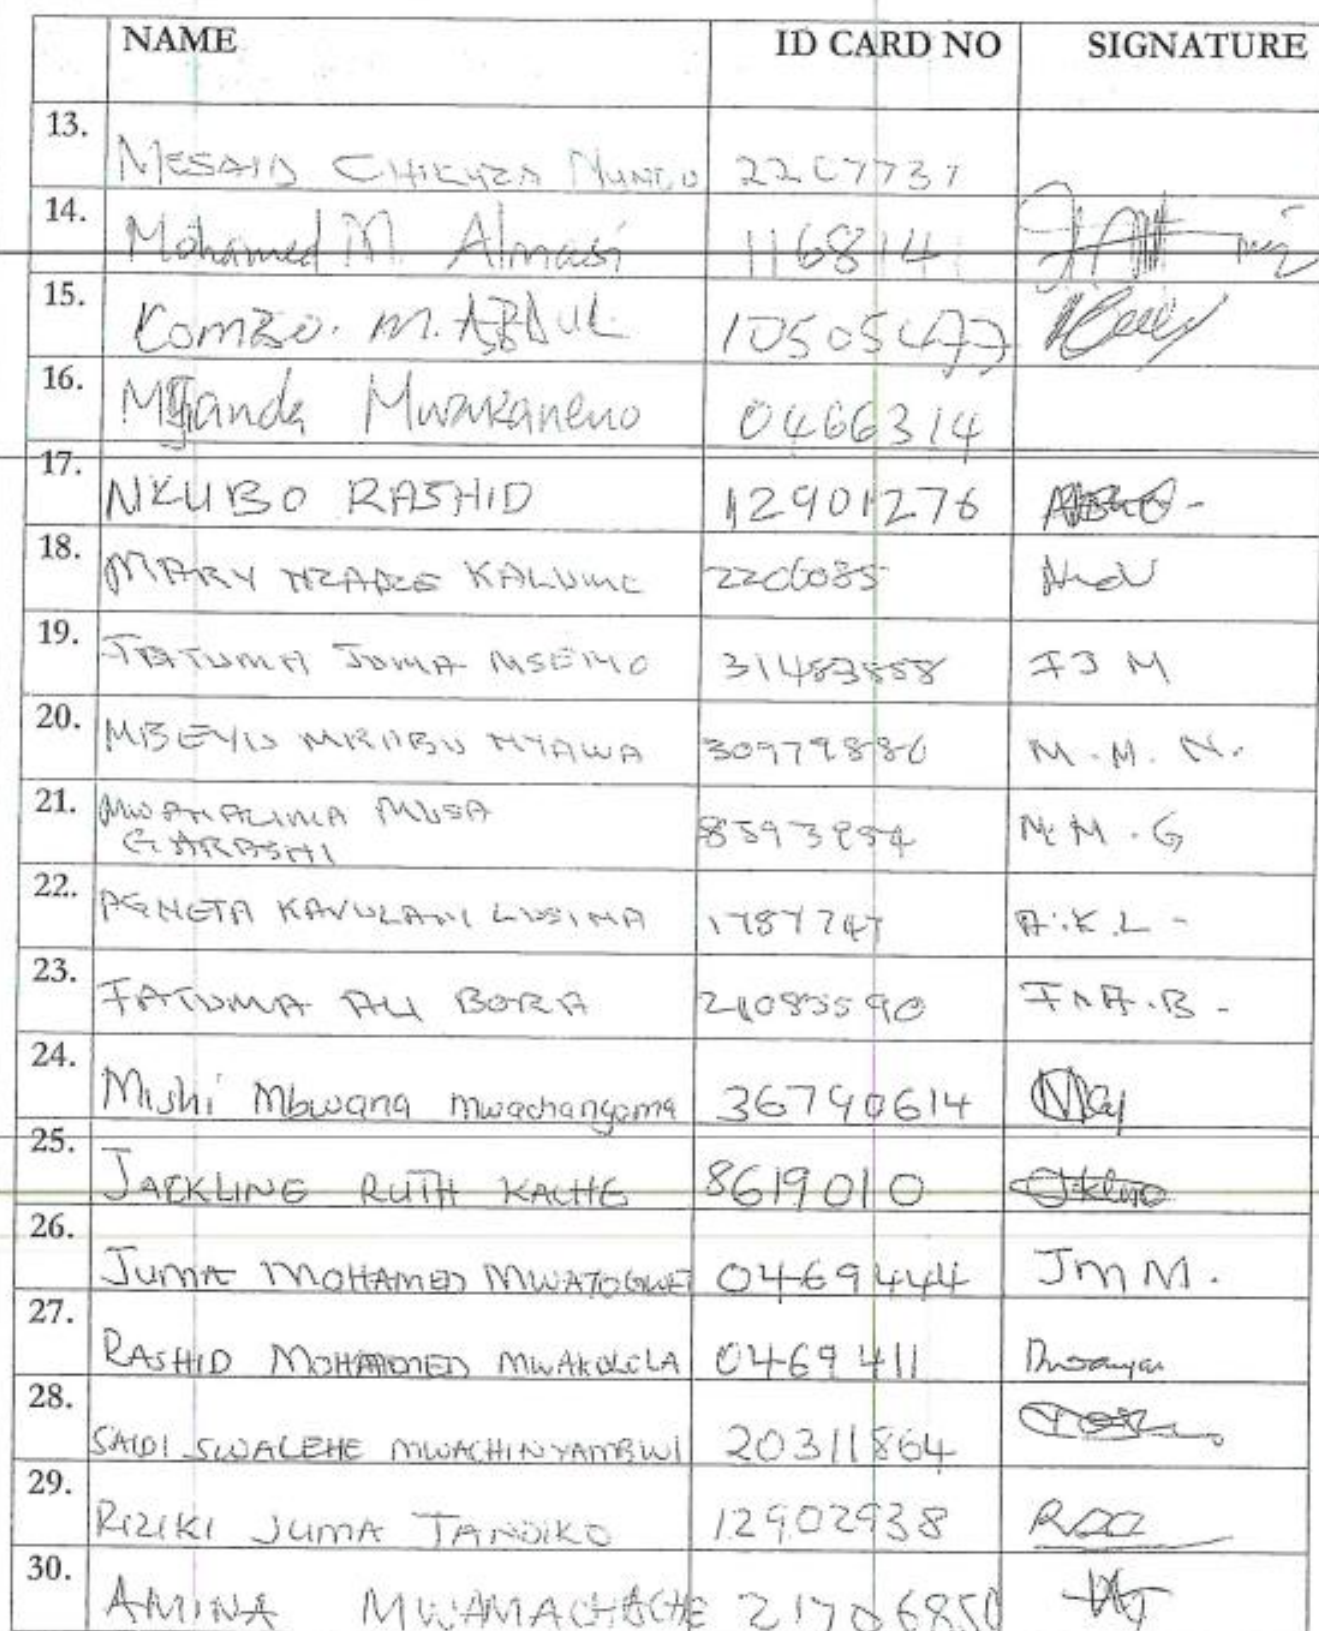 NAME ID CARD NO SIGNATURE
13. MESAID CHIKUZA
14. Mohamed M. Almasi 116814
15. KOMBO. M. ABDUL 10505477
16. Mwakaneno 0466314
17. NKUBO RASHID 12901276
18. MARY NZADZE KALUME
19. FATUMA JUMA MSEMO F J M
20. MBEYU MRABU NYAWA 30979880 M. M. N.
21. MWANALIMA MUSA M. M. G
GARASHI
22. AGNETA KAVULANI LUSIMA 1787747 A. K. L -
23. FATUMA ALI BORA 21083590 B -
24. Mishi Mbwana Mwachangoma 36790614
25. JACKLINE RUTH KACHE 8619010
26. JUMA MOHAMED 0469444 JMM.
27. RASHID MOHAMMED MWAKULOLA 0469411
28. SAIDI SWALEHE MWACHINYAMBWI 20311864
29. RIZIKI JUMA TANDIKO 12902938
30. AMINA MWAMACHACHE 21706850